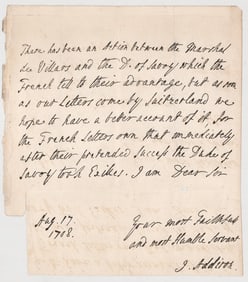 There has been an Action between the Marshal
de Villars and the D. of Savoy which the
French tell to their advantage, but as soon
as our Letters come by Switzerland we
hope to have a better account of it, for
the French Letters own that immediately
after their pretended success the Duke of
Savoy took Exilles. I am Dear Sir
Your most Faithfull
and most Humble Servant
J. Addison.
Aug. 17.
1708.